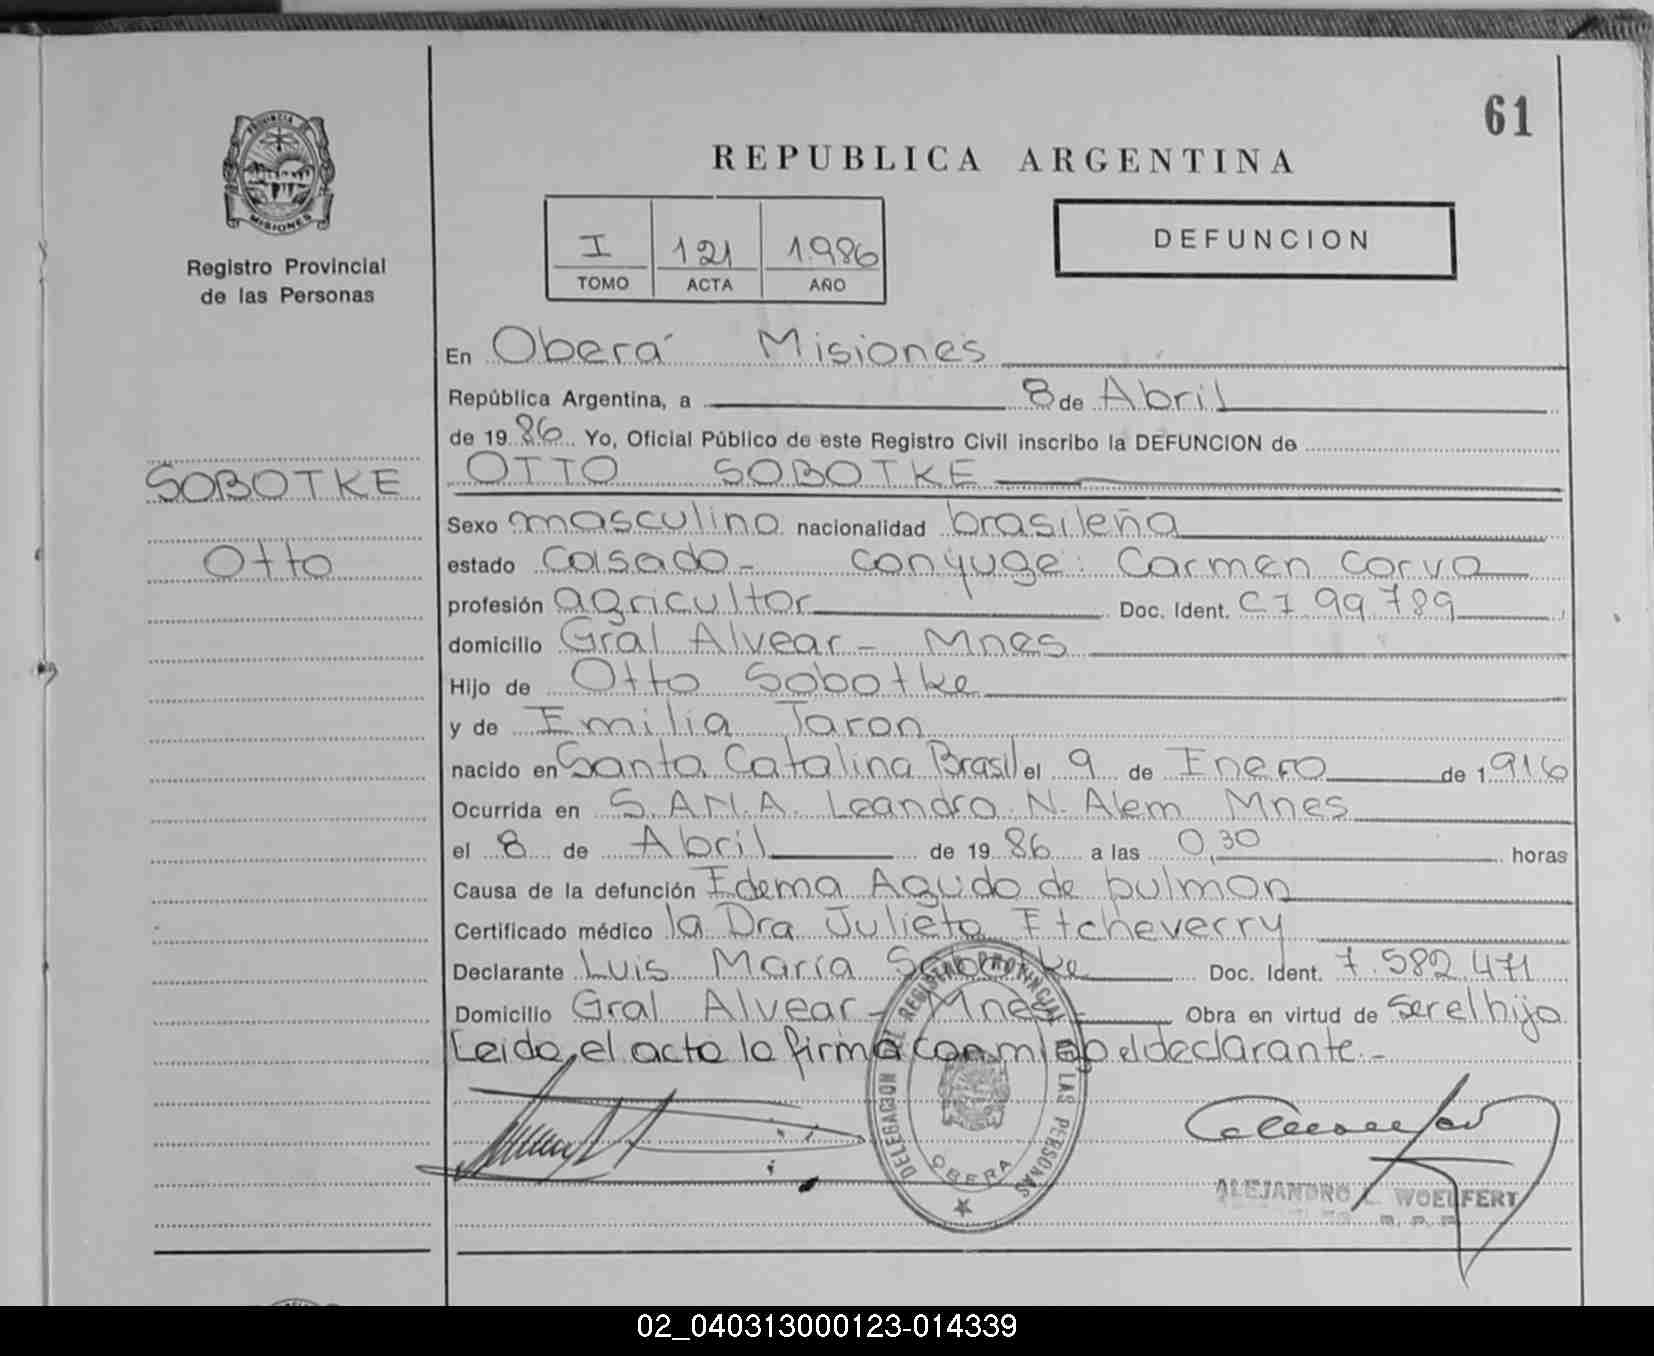 61
PROVINCIA DE
MISIONES
Registro Provincial
de las Personas
REPUBLICA ARGENTINA
I 121 1986
TOMO ACTA AÑO
DEFUNCION
SOBOTKE
Otto
En Oberá Misiones
República Argentina, a 8 de Abril
de 19 86 Yo, Oficial Público de este Registro Civil inscribo la DEFUNCION de
OTTO SOBOTKE
Sexo masculino nacionalidad brasileña
estado casado - conyuge: Carmen Corva
profesión agricultor Doc. Ident. C I 99.789
domicilio Gral Alvear - Mnes
Hijo de Otto Sobotke
y de Emilia Taron
nacido en Santa Catalina Brasil el 9 de Enero de 1916
Ocurrida en S.A.M.A. Leandro N. Alem Mnes
el 8 de Abril de 19 86 a las 0,30 horas
Causa de la defunción Edema Agudo de pulmon
Certificado médico la Dra Julieta Etcheverry
Declarante Luis María Sobotke Doc. Ident. 7.582.471
Domicilio Gral Alvear - Mnes Obra en virtud de ser el hijo
Leida el acta la firma conmigo el declarante.-
DELEGACION DEL REGISTRO PROVINCIAL DE LAS PERSONAS
OBERA
ALEJANDRO L. WOELFERT
02_040313000123-014339